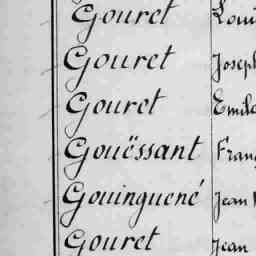 Gouret Loui
Gouret Joseph
Gouret Emile
Gouëssant Franç
Gouinguené Jean
Gouret Jean